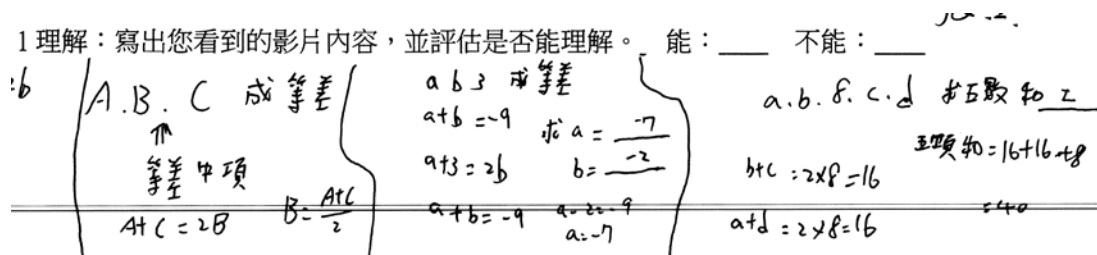 1 理解：寫出您看到的影片內容，並評估是否能理解。 能：____ 不能：____
A.B.C 成等差
⇑
等差中項
A+C=2B
B=\frac{A+C}{2}
a b 3 成等差
a+b=-9
求 a = -7
a+3=2b
b= -2
a+b=-9
a-2=-9
a=-7
a.b.8.c.d 求五數和
五項和=16+16+8
b+c=2×8=16
=40
a+d=2×8=16